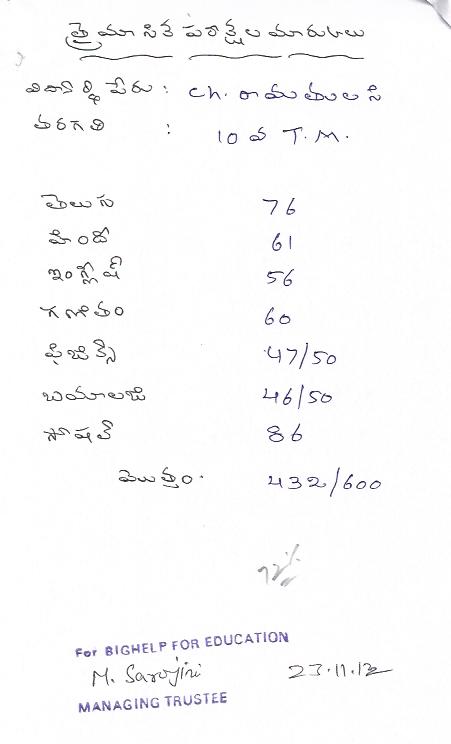 త్రైమాసిక పరీక్షల మార్కులు
విద్యార్థి పేరు : Ch. రామతులసి
తరగతి : 10 వ T.M.
తెలుగు 76
హిందీ 61
ఇంగ్లీష్ 56
గణితం 60
ఫిజిక్స్ 47/50
బయాలజి 46/50
సోషల్ 86
మొత్తం. 432/600
72%
For BIGHELP FOR EDUCATION
M. Sarojini 23.11.12
MANAGING TRUSTEE